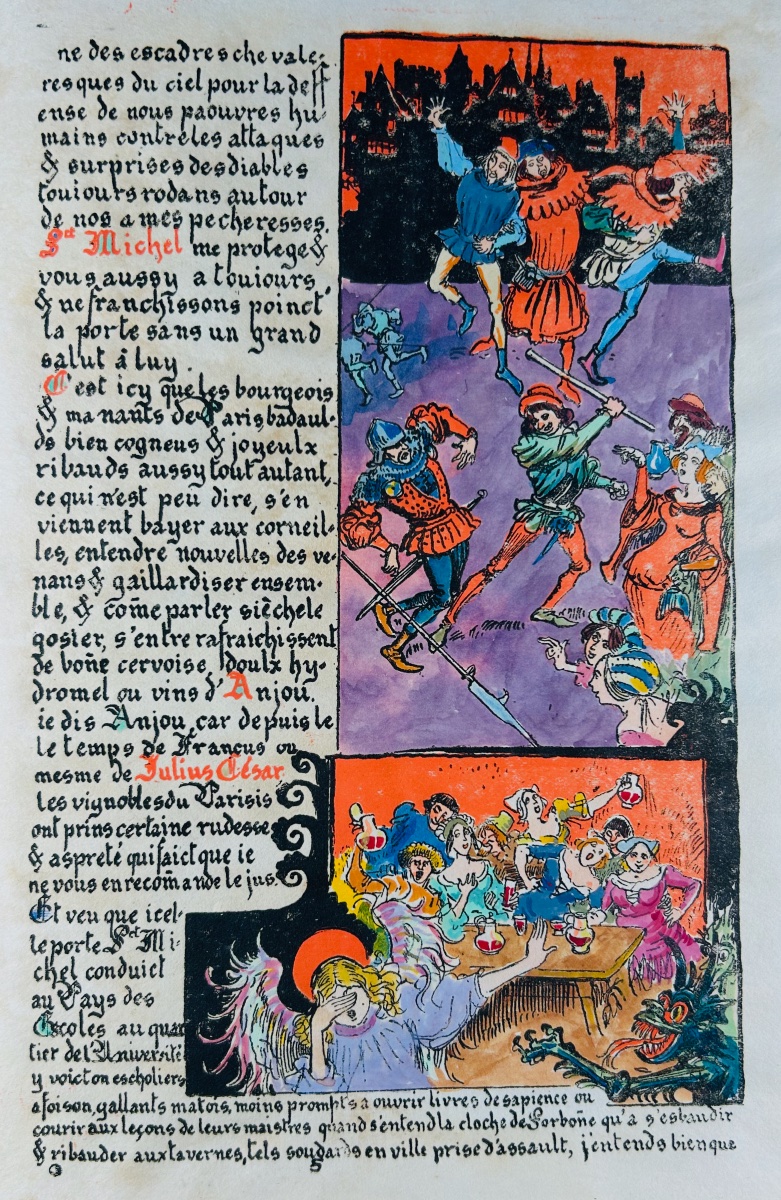 ne des escadres chevale-
resques du ciel pour la deff
ense de nous paouvres hu-
mains contre les attaques
& surprises des diables
toujours rodans autour
de nos ames pecheresses.
Sct Michel me protege &
vous aussy a toujours,
& ne franchissons poinct
la porte sans un grand
salut â luy.
C'est icy que les bourgeois
& manants de Paris badaul-
ds bien cogneus & joyeulx
ribauds aussy tout autant,
ce qui n'est peu dire, s'en
viennent bayer aux corneil-
les, entendre nouvelles des ve-
nans & gaillardiser ensem-
ble, & cōme parler sièchele
gosier, s'entre rafraichissent
de boñe cervoise, doulx hy-
dromel ou vins d'Anjou.
ie dis Anjou, car depuis le
le temps de Francus ou
mesme de Julius César
les vignobles du Parisis
ont prins certaine rudesse
& aspreté qui faict que ie
ne vous en recom̃ande le jus.
Et veu que icel-
le porte Sct Mi-
chel conduict
au Pays des
Escoles au quar
tier de l'Université
y voict on escholiers
a foison, gallants matois, moins prompts a ouvrir livres de sapience ou
courir aux leçons de leurs maistres quand s'entend la cloche de Sorboñe qu'a s'esbaudir
& ribauder aux tavernes, tels soudards en ville prise d'assault, j'entends bien que
5